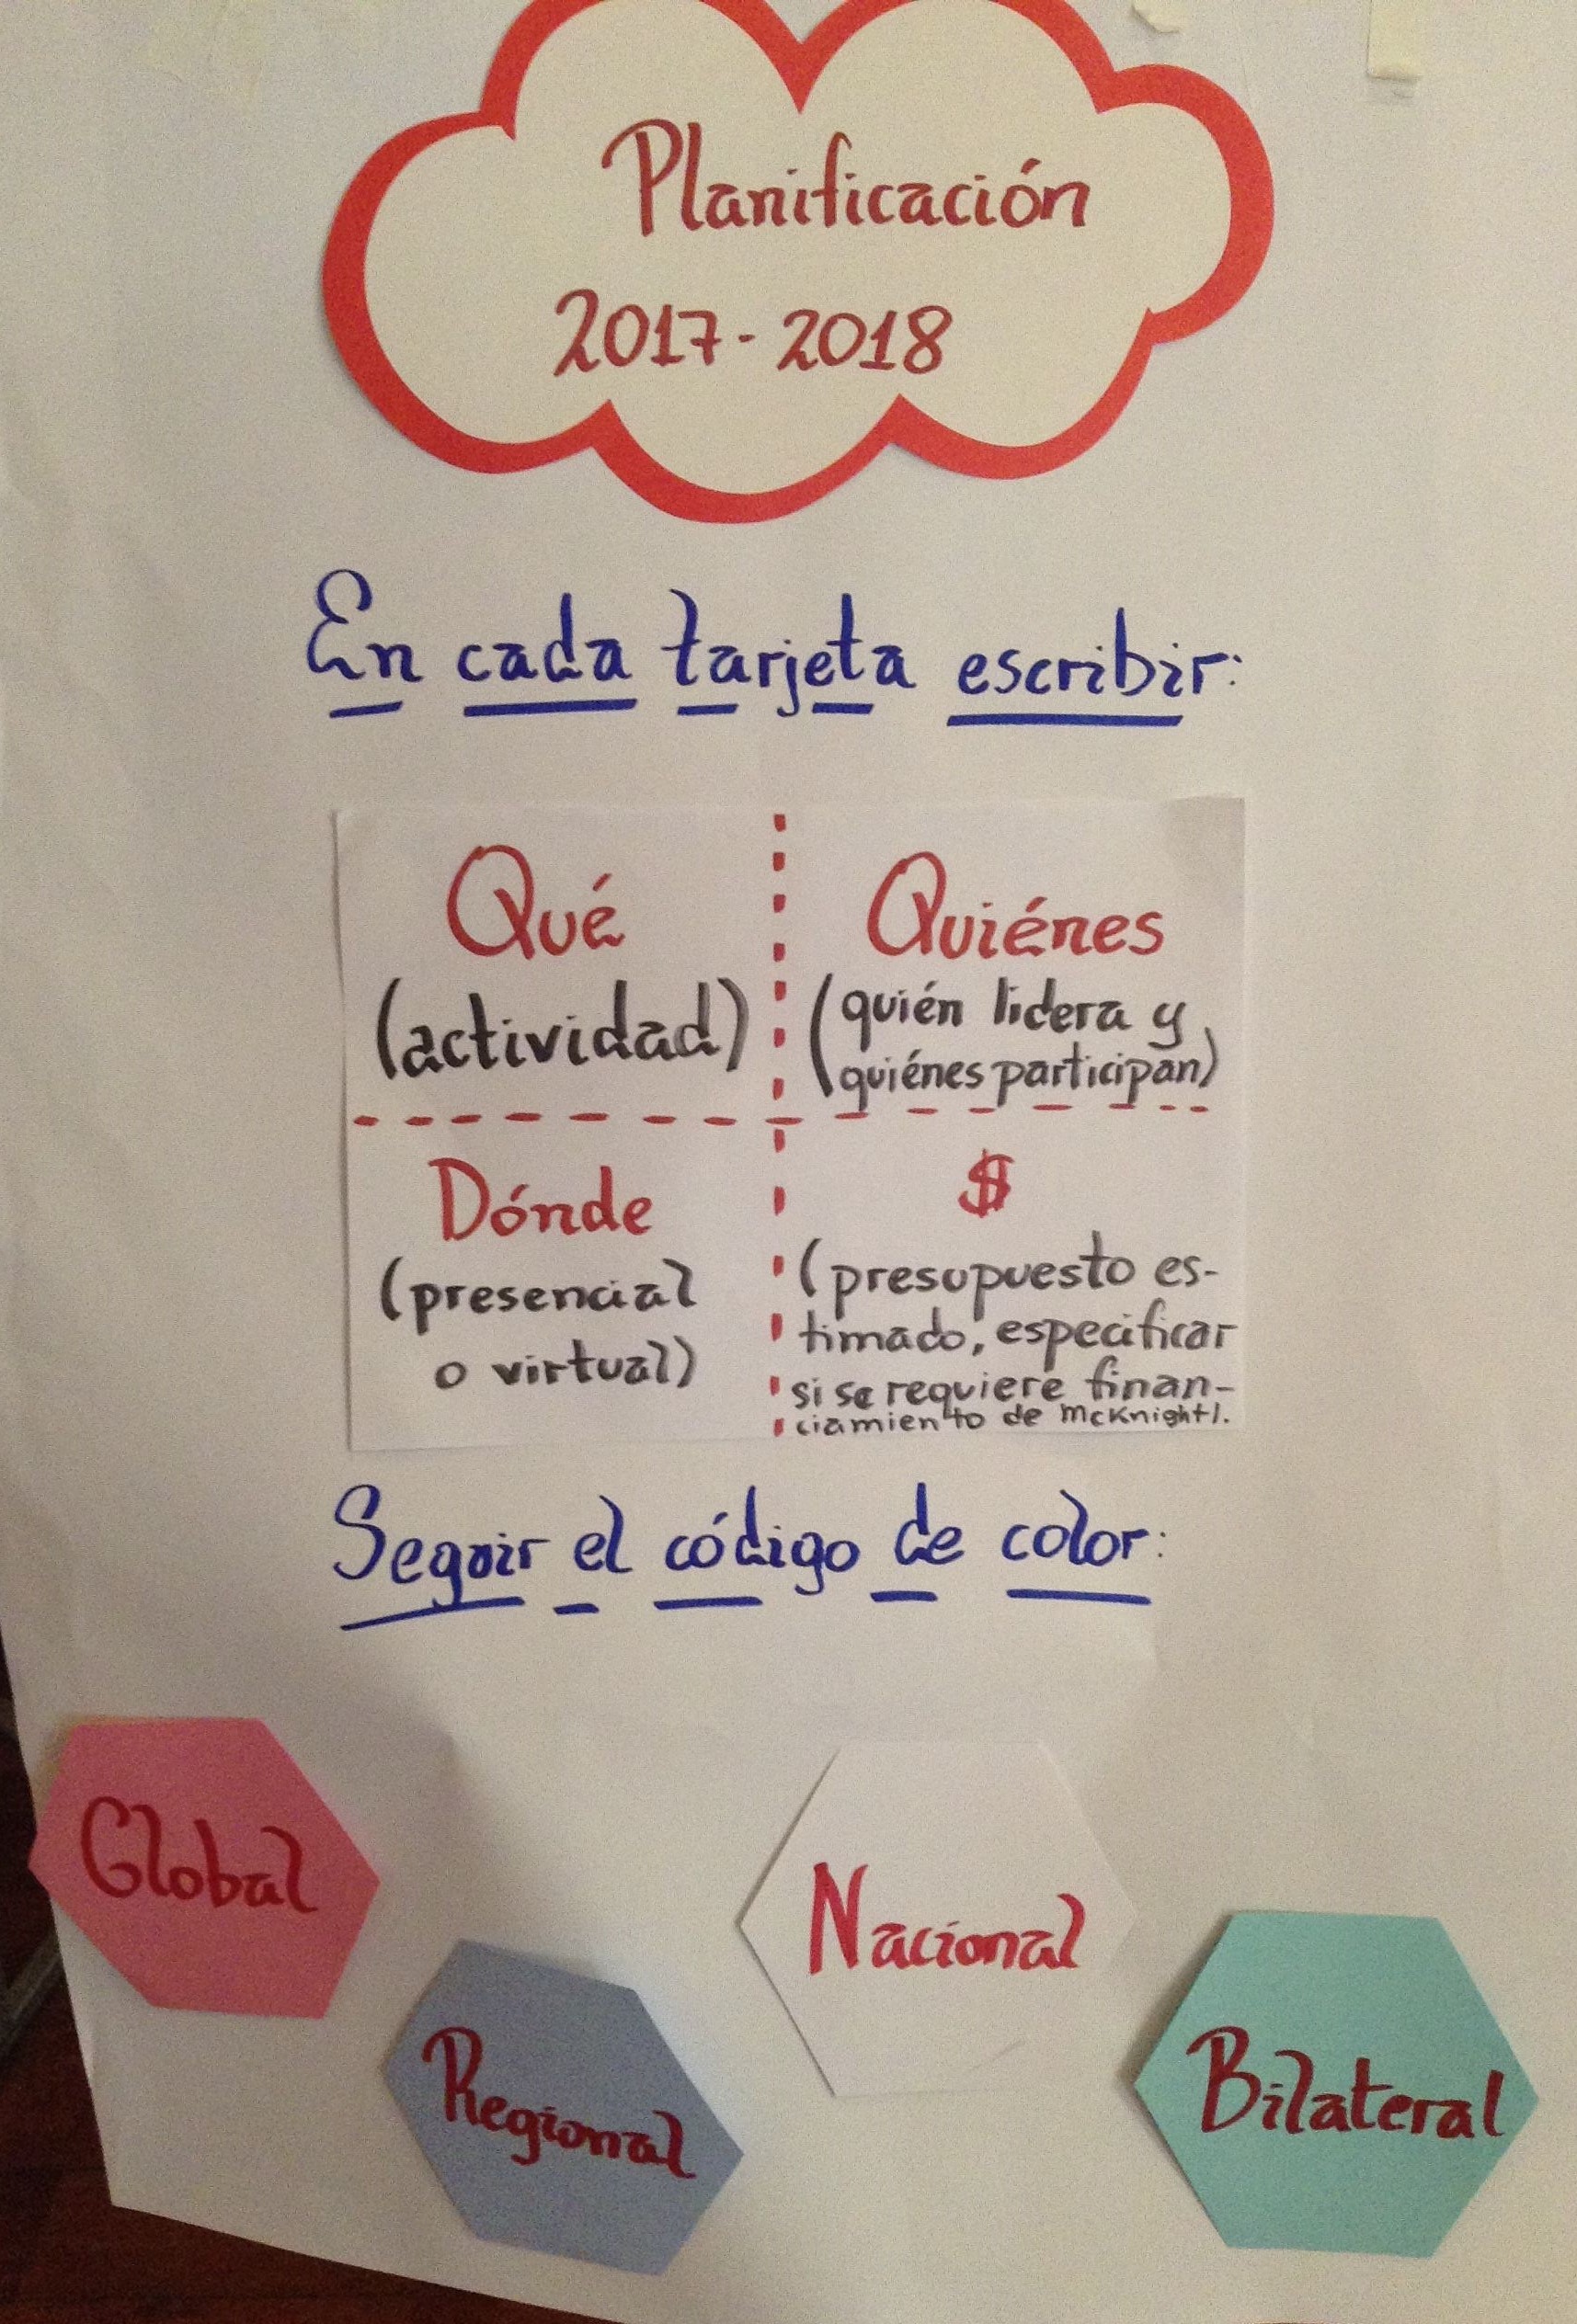 Planificación
2017-2018
En cada tarjeta escribir:
Qué
(actividad)
Quiénes
(quién lidera y
quiénes participan)
Dónde
(presencial
o virtual)
$
(presupuesto es-
timado, especificar
si se requiere finan-
ciamiento de McKnight).
Seguir el código de color:
Global
Regional
Nacional
Bilateral